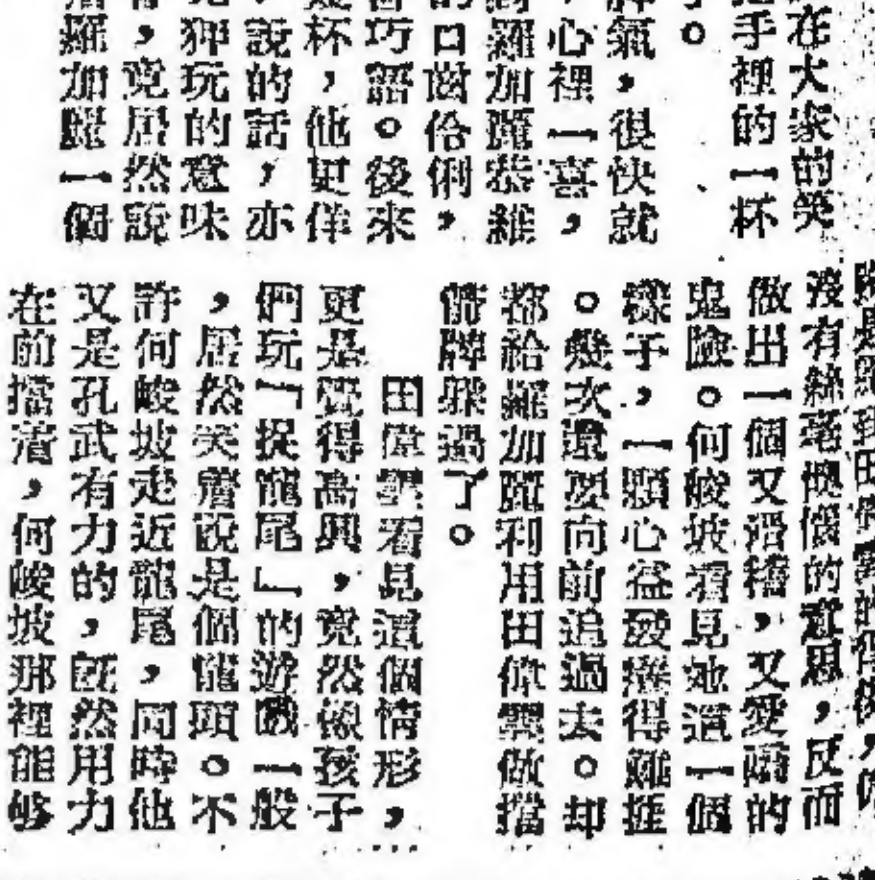 在大家的笑
手裡的一杯
。
脾氣，很快就
，心裡一喜，
羅加麗恭維
的口齒伶俐，
巧語。後來
杯，他更佯
說的話，亦
狎玩的意味
，竟居然說
羅加麗一個
沒有絲毫懊惱的意思，反而
做出一個又滑稽，又愛嬌的
鬼臉。何峻坡看見她這一個
樣子，一顆心益發癢得難捱
。幾次還要向前追過去。却
都給羅加麗利用田偉霖做擋
箭牌躱過了。
田偉霖看見這個情形，
更是覺得高興，竟然像孩子
們玩「捉龍尾」的游戲一般
，居然笑着說是個龍頭。不
許何峻坡走近龍尾，同時他
又是孔武有力的，旣然用力
在前擋着，何峻坡那裡能够